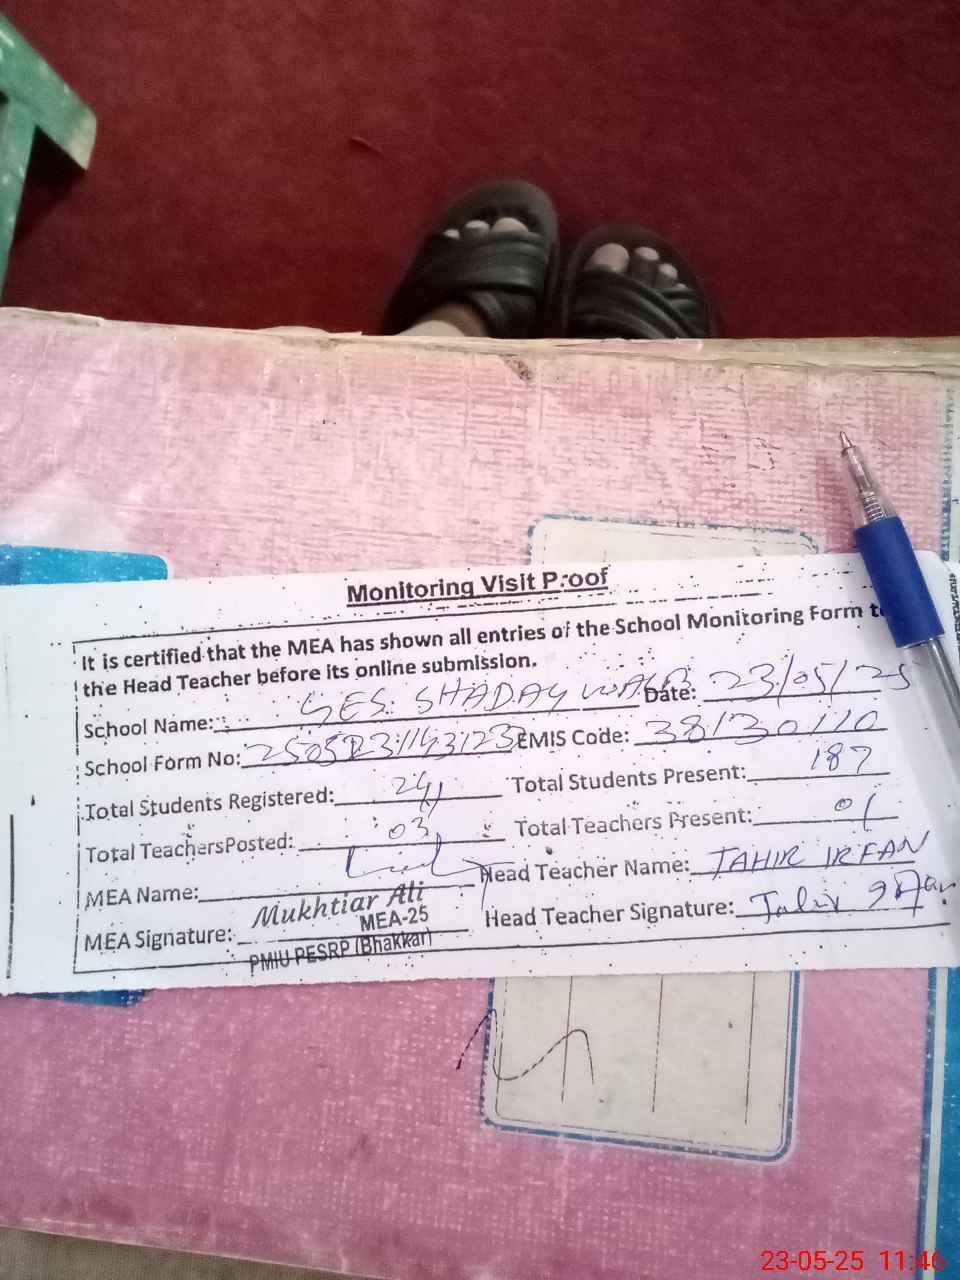 Monitoring Visit Proof
It is certified that the MEA has shown all entries of the School Monitoring Form to
the Head Teacher before its online submission.
School Name: GES SHADAY WALA Date: 23/05/25
School Form No: EMIS Code: 38130110
Total Students Registered: 241 Total Students Present: 187
Total TeachersPosted: 03 Total Teachers Present: 01
MEA Name: Head Teacher Name: TAHIR IRFAN
MEA Signature: Mukhtiar Ali Head Teacher Signature: Tahir Irfan
MEA-25
PMIU PESRP (Bhakkar)
23-05-25 11:46